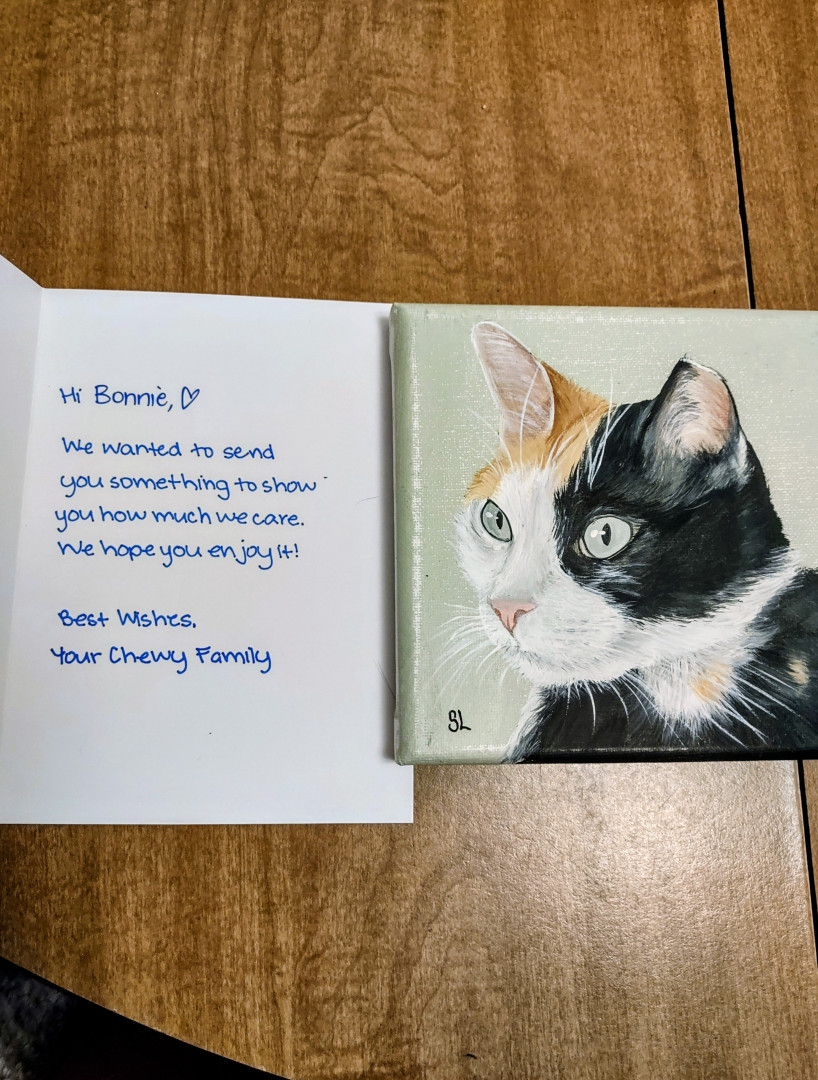 Hi Bonniè, ♡
We wanted to send
you something to show
you how much we care.
We hope you enjoy it!
Best Wishes,
Your Chewy Family
SL